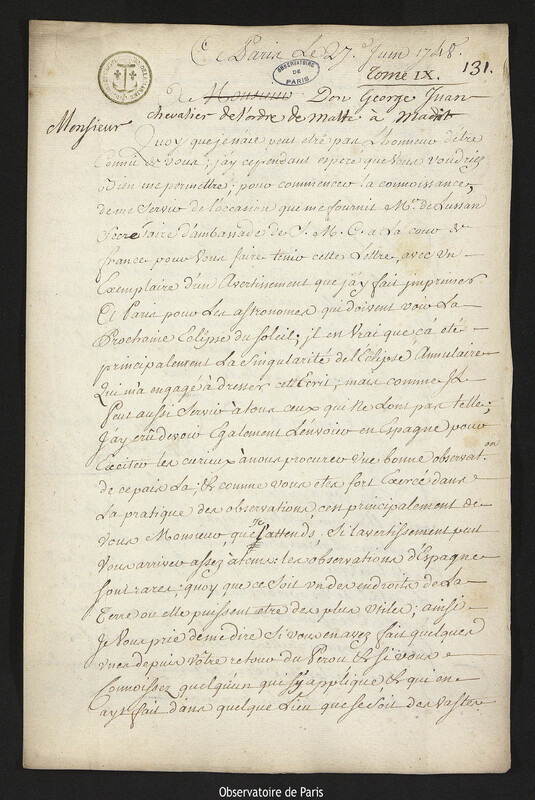 Ce Paris Le 27.e Juin 1748.
OBSERVATOIRE DE PARIS
Tome IX. 131.
De Monsieur Don George Juan
chevalier de l'ordre de Malte à Madrit
Monsieur
Quoy que je n'aie peut etre pas L'honneur d'être
Connu de vous; j'ay cependant esperé que vous voudriez
Bien me permettre, pour commencer la connoissance,
de me Servir de l'occasion que me fournit Mr. de Lussan
Secretaire d'ambassade de S. M. C. a La cour de
france pour vous faire tenir cette Lettre, avec un
Exemplaire d'un Avertissement que j'ay fait imprimer
Ci Paris pour Les astronomes qui doivent voir La
Prochaine Eclipse du Soleil; il en vrai que ç'a été
principalement La Singularité de l'Eclipse Annulaire
Qui m'a engagé à dresser cet Ecrit; mais comme Il
Peut aussi Servir à tous ceux qui Ne L'ont pas telle;
J'ay crû devoir Egalement L'envoier en Espagne pour
Exciter les curieux à nous procurer une bonne observat.on
de ce pais La; & comme vous etes fort Exercé dans
La pratique des observations c'en principalement de
vous Monsieur que je l'attends, Si l'avertissement peut
Vous arriver assez à tems: les observations d'Espagne
Sont rares; quoy que ce Soit un des endroits de La
Terre ou elle puissent etre des plus utiles; ainsi
Je Vous prie de me dire Si vous en avez fait quelques
unes depuis Vôtre retour du Perou & Si vous
Connoissez quelqu'un qui S'y applique & qui en
ayt fait dans quelque Lieu que ce Soit des vastes
Observatoire de Paris